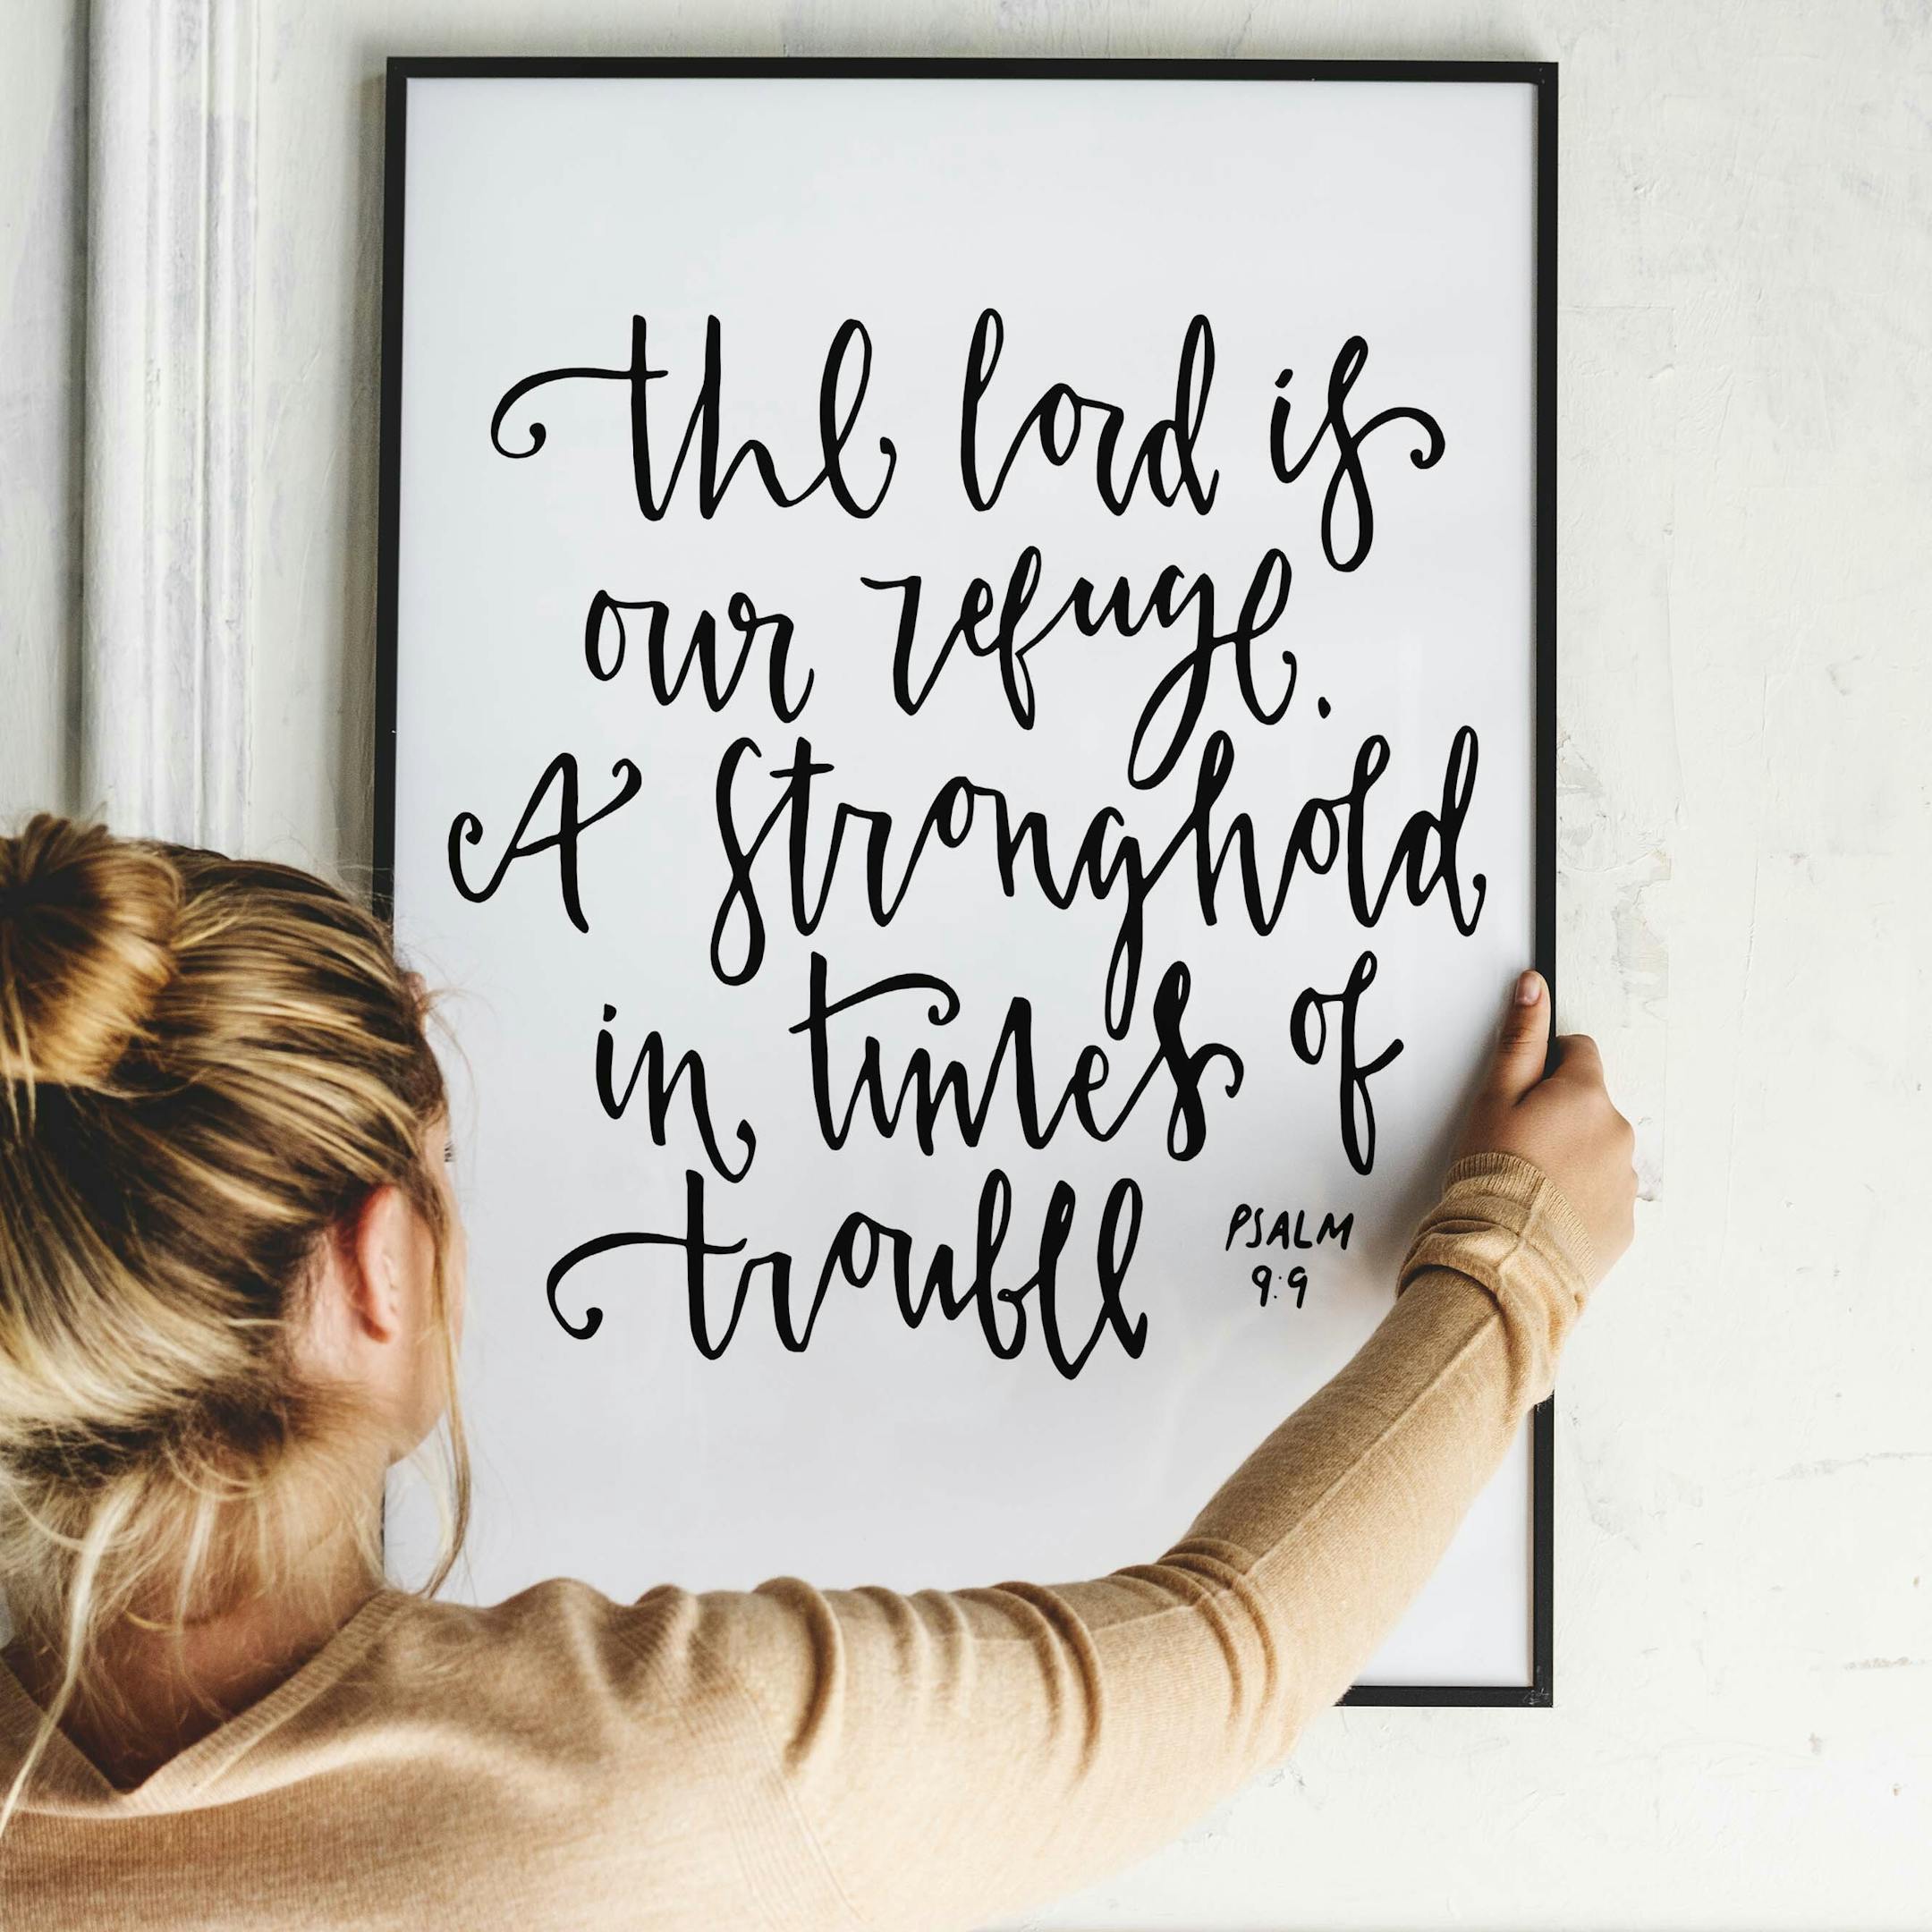 the lord is
our refuge.
A stronghold
in times of
trouble
PSALM
9:9